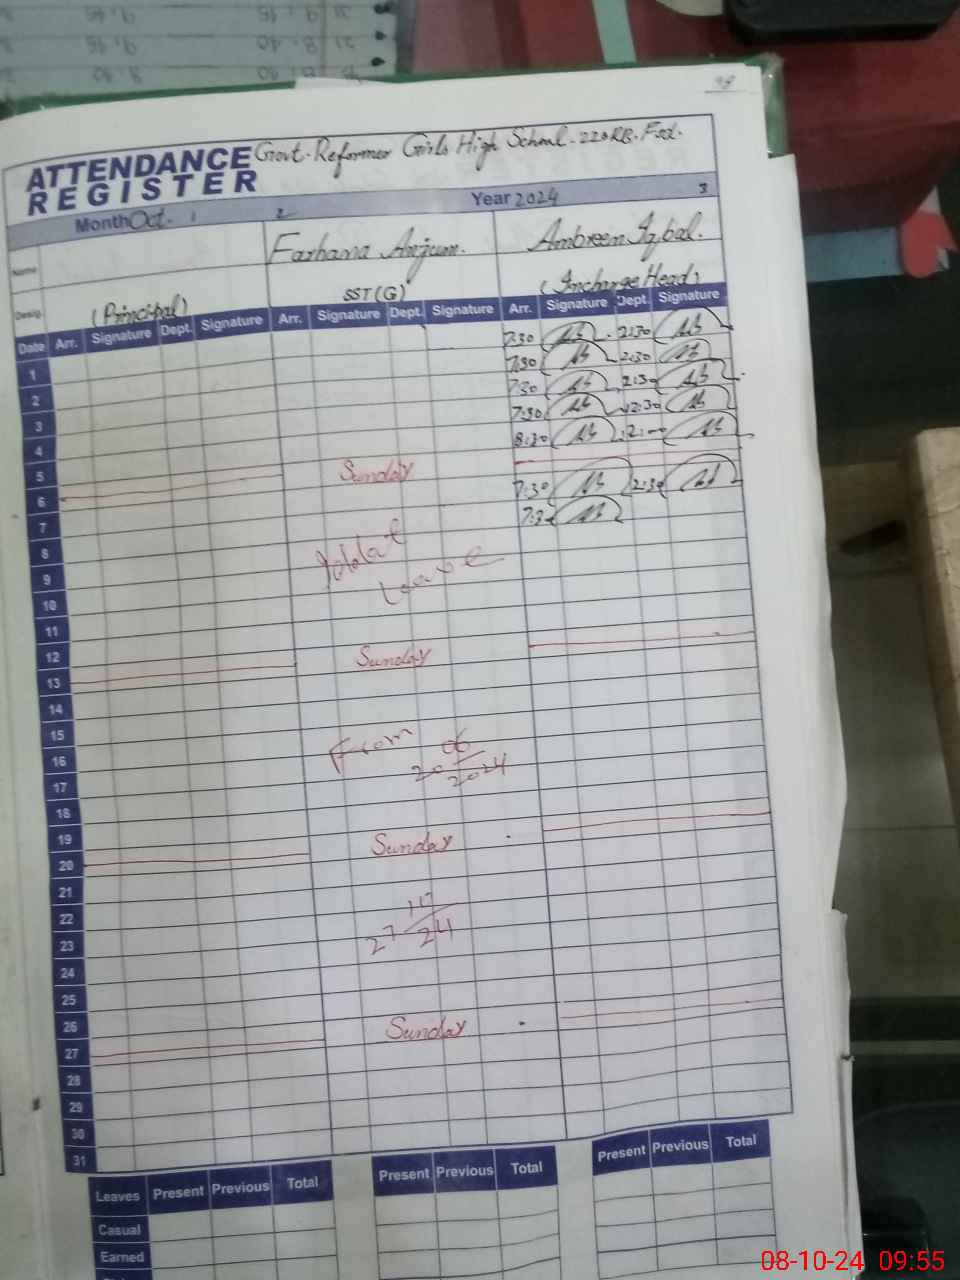 98
ATTENDANCE REGISTER
Govt. Reformer Girls High School - 220 RB. Fsd.
Month Oct. 1 2 Year 2024 3
Name Farhana Anjum. Ambreen Iqbal.
Desig. (Principal) SST (G) (Incharge Head)
Date Arr. Signature Dept. Signature Arr. Signature Dept. Signature Arr. Signature Dept. Signature
1 7:30 2:30
2 7:30 2:30
3 7:30 2:30
4 7:30 12:30
5 8:30 2:00
6 Sunday
7 7:30 2:30
8
9 Iddat
10 Leave
11
12
13 Sunday
14
15
16 From
17 20 06/2024
18
19
20 Sunday
21
22
23 27 10/24
24
25
26
27 Sunday
28
29
30
31
Leaves Present Previous Total Present Previous Total Present Previous Total
Casual
Earned
08-10-24 09:55